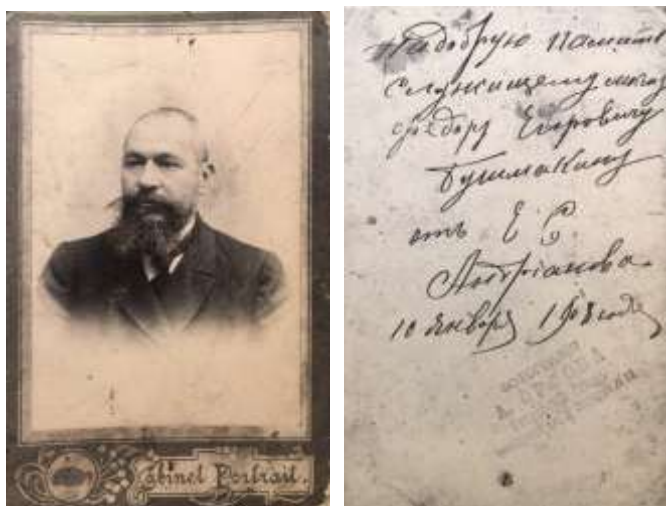 Cabinet Portrait.
На добрую память
служащему
Федору Егоровичу
Бушмакину
отъ Е
Андріанова.
10 Января 1908 года